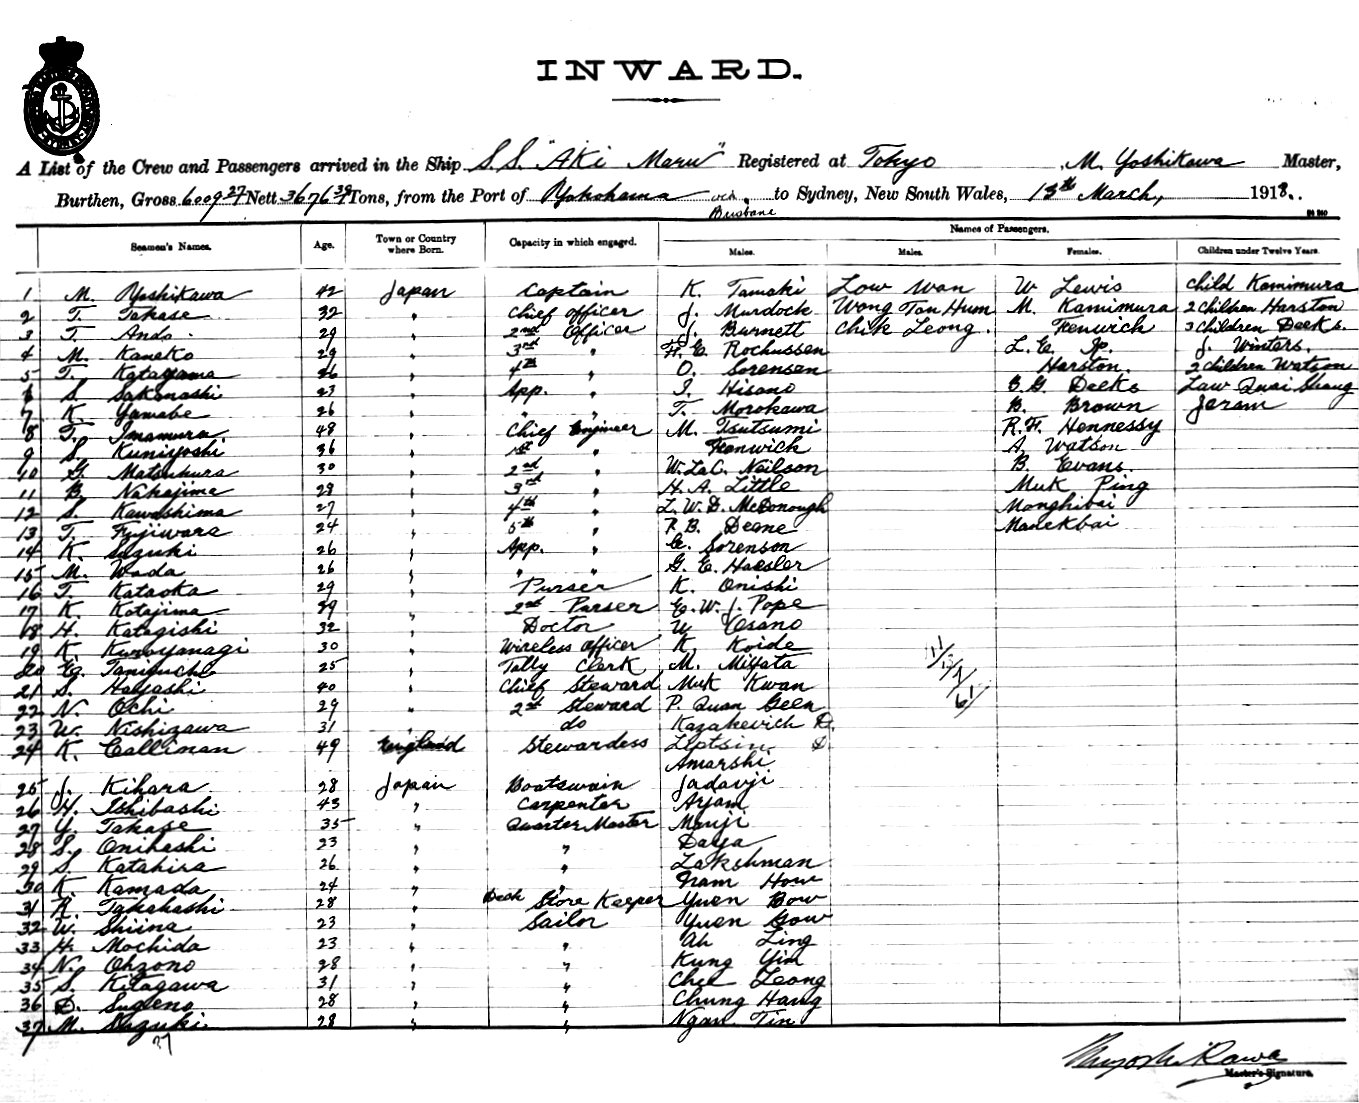 INWARD.
A List of the Crew and Passengers arrived in the Ship S.S. "Aki Maru" Registered at Tokyo , M. Yoshikawa Master,
Burthen, Gross 6009 27 Nett 3676 39 Tons, from the Port of Yokohama via Brisbane to Sydney, New South Wales, 13th March, 1918.
Names of Passengers.
Seamen's Names. Age. Town or Country where Born. Capacity in which engaged. Males. Males. Females. Children under Twelve Years.
1 M. Yoshikawa 42 Japan Captain K. Tamaki Low Wan W Lewis Child Kamimura
2 T. Takase 32 " Chief officer J. Murdock Wong Tan Hum M. Kamimura 2 Children Harston
3 T. Ando 29 " 2nd Officer J. Burnett Chik Leong. Fenwich 3 Children Deeks.
4 M. Kaneko 29 " 3rd " H. E. Rochussen L. E. J. Winters.
5 T. Katayama 26 " 4th " O. Sorensen Harston. 2 Children Watson
6 S. Sakonashi 23 " App. " I. Hisano B. G. Deeks Law Quai Shang
7 K. Yamabe 26 " " " T. Morokawa B. Brown Jeram
8 T. Imamura 48 " Chief Engineer M. Tsutsumi R. H. Hennessy
9 S. Kuniyoshi 36 " 1st " Fenwich A. Watson
10 G. Matsukura 30 " 2nd " W. LaC. Neilson B. Evans.
11 B. Nakajima 28 " 3rd " H. A. Little Muk Ping
12 S. Kawashima 27 " 4th " L. W. D. McDonough Monghibai
13 T. Fujiwara 24 " 5th " R B. Deane Manekbai
14 K. Suzuki 26 " App. " C. Sorenson
15 M. Wada 26 " " " G. E. Haesler
16 T. Kataoka 29 " Purser K. Onishi
17 K Kotajima 29 " 2nd Purser E. W. J. Pope
18 H. Katagishi 32 " Doctor U Osano
19 K Kuroyanagi 30 " Wireless officer K Koide
20 Eg. Taniguchi 25 " Tally Clerk M. Miyata
21 S. Hayashi 40 " Chief Steward Muk Kwan
22 N. Ochi 29 " 2nd Steward P. Quan Geen
23 W. Nishizawa 31 " do Kazakevich D.
24 K. Calliman 49 England Stewardess Leptsin D.
Amarshi
25 J. Kihara 28 Japan Boatswain Jadavji
26 H. Ishibashi 43 " Carpenter Aryam
27 Y. Takase 35 " Quarter Master Manji
28 S. Onihashi 23 " " Daya
29 S. Katahira 26 " " Lakshman
30 K. Kamada 24 " " Nam How
31 R. Takahashi 28 " Deck Store Keeper Yuen Bow
32 W. Shiina 23 " Sailor Yuen Gow
33 H. Mochida 23 " " Ah Ling
34 N. Ohzono 28 " " Kung Yim
35 S. Kitagawa 31 " " Chee Leong
36 D. Sugeno 28 " " Chung Hang
37 M. Suzuki 28 " " Ngan Tin
37
Master's Signature.